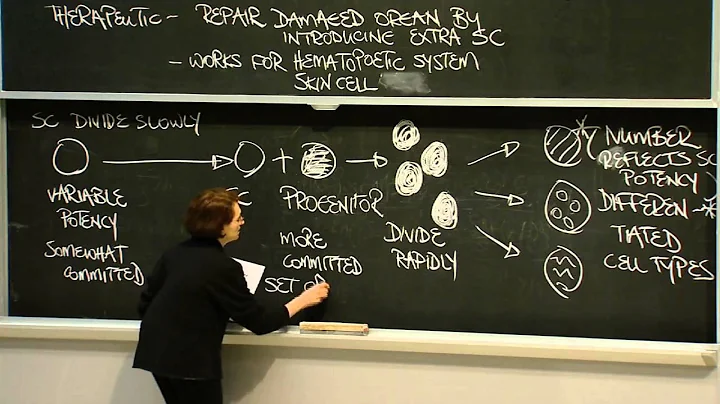 THERAPEUTIC - REPAIR DAMAGED ORGAN BY
INTRODUCING EXTRA SC
- WORKS FOR HEMATOPOETIC SYSTEM
SKIN CELL
SC DIVIDE SLOWLY
+
VARIABLE
POTENCY
SOMEWHAT
COMMITTED
PROGENITOR
MORE
COMMITTED
SET OF
DIVIDE
RAPIDLY
NUMBER
REFLECTS SC
POTENCY
DIFFEREN-
TIATED
CELL TYPES